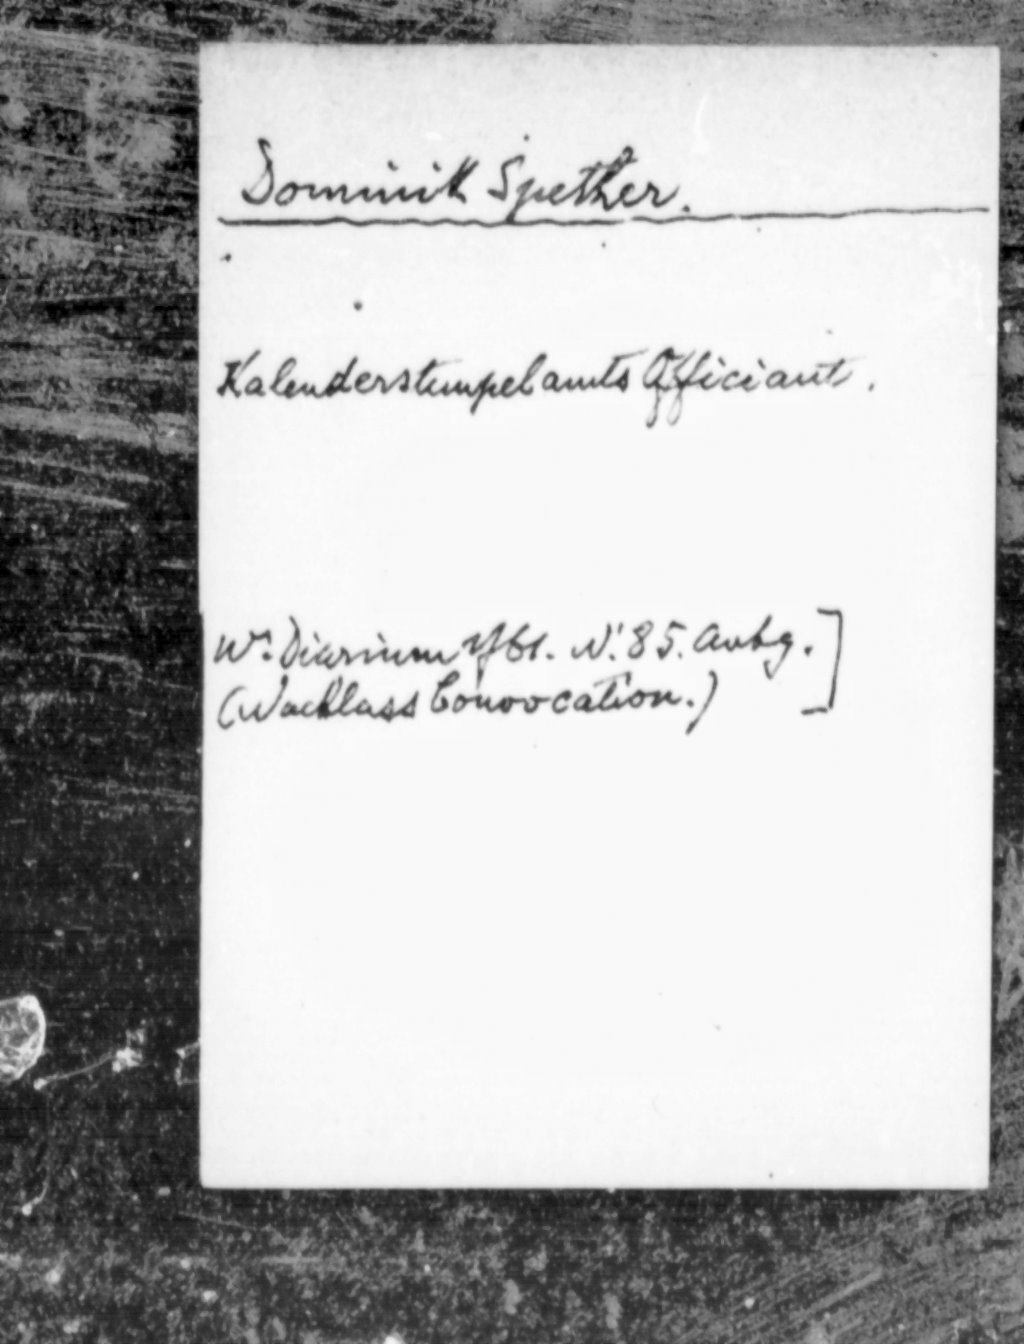 Dominik Spether.
Kalenderstempelamts Officiant.
Wr. Diarium 1761. N. 85. Anhg.]
(Nachlass Convocation.)